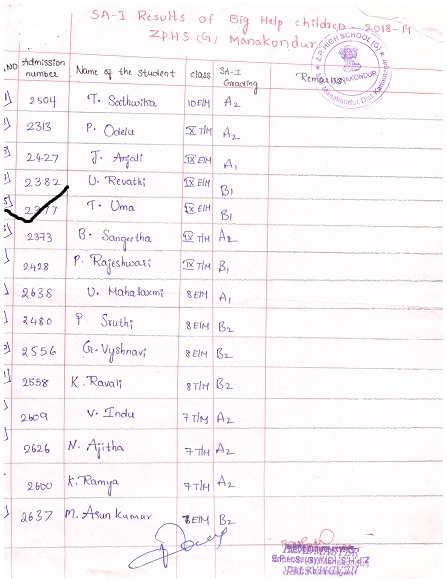 SA-I Results of Big Help children - 2018-19
Z.P.H.S (G), Manakondur
S.NO Admission number Name of the student class SA-I Grading Remarks
2504 T. Sathwika 10 E/M A2
2313 P. Odelu X T/M A2
2427 J. Anjali IX E/M A1
2382 U. Revathi IX E/M B1
5) T. Uma IX E/M B1
2373 B. Sangeetha IX T/M A2
2428 P. Rajeshwari IX T/M B1
2638 U. Mahalaxmi 8 E/M A1
2480 P Sruthi 8 E/M B2
2556 G. Vyshnavi 8 E/M B2
2558 K. Ravali 8 T/M B2
2609 V. Indu 7 T/M A2
2626 N. Ajitha 7 T/M A2
2600 K. Ramya 7 T/M A2
2637 M. Arun Kumar E/M B2
Z.P. HIGH SCHOOL (G)
MANAKONDUR